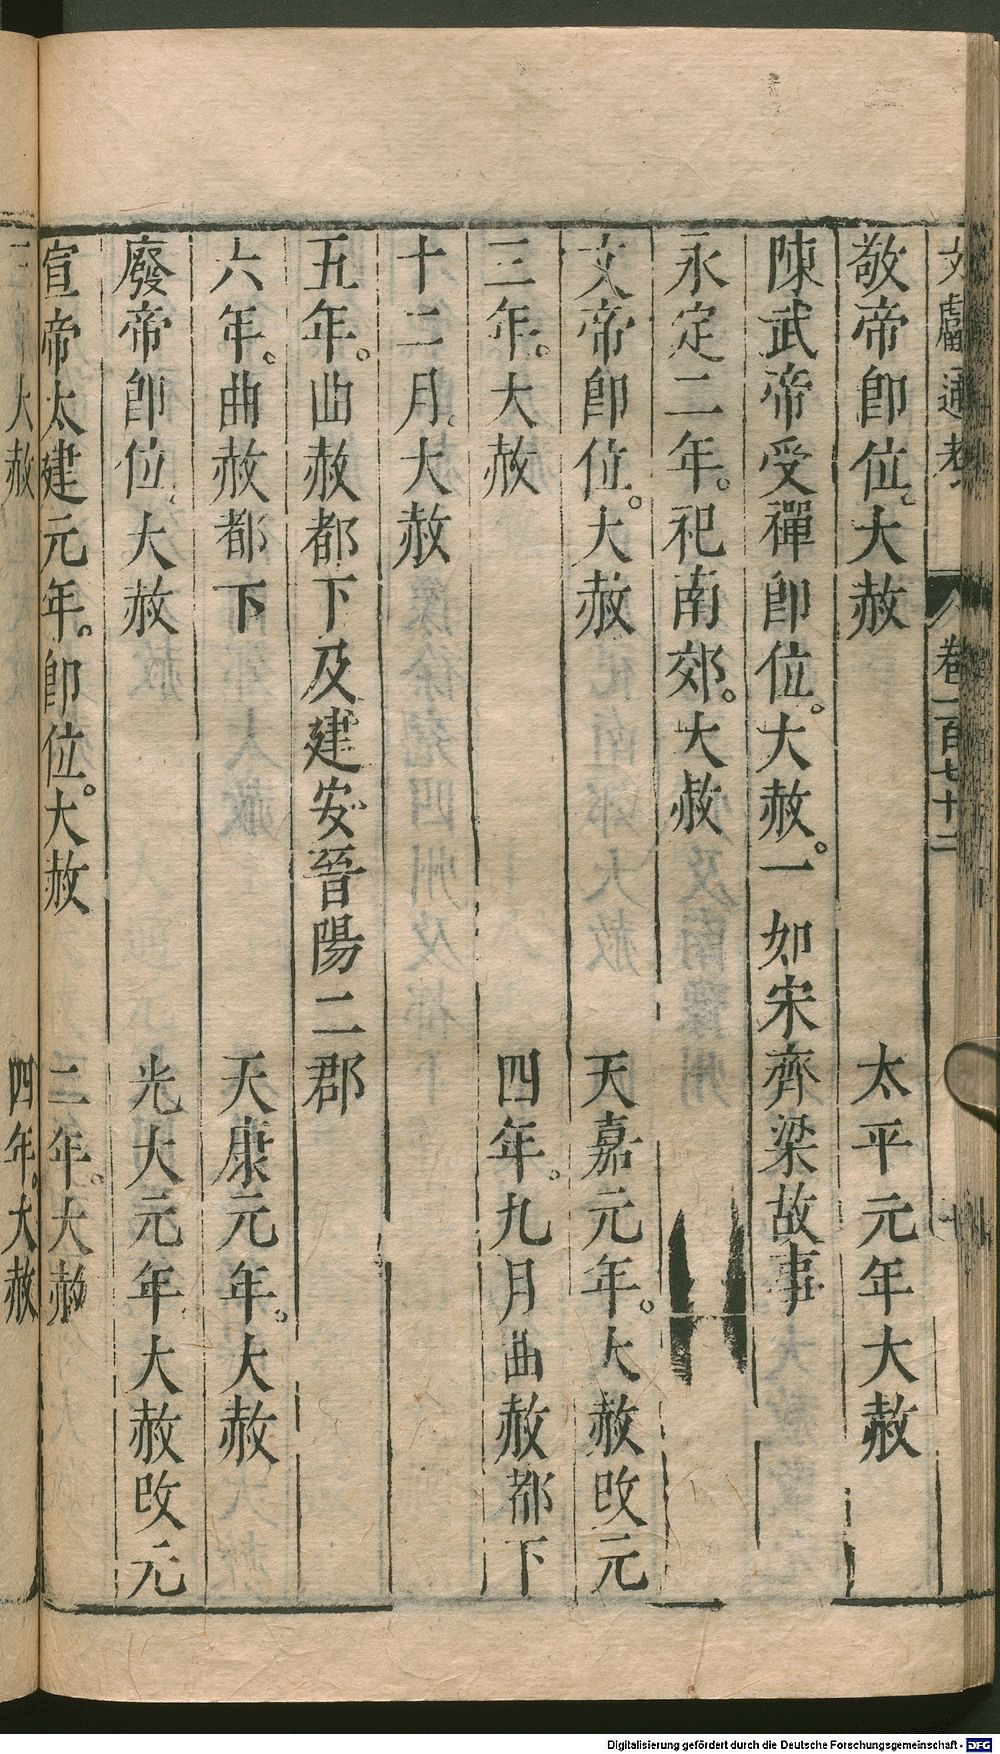 文獻通考 卷一百七十二
敬帝卽位。大赦 太平元年大赦
陳武帝受禪卽位。大赦。一如宋齊梁故事
永定二年。祀南郊。大赦
文帝卽位。大赦 天嘉元年。大赦改元
三年。大赦 四年。九月曲赦都下
十二月。大赦
五年。曲赦都下及建安晉陽二郡
六年。曲赦都下 天康元年。大赦
廢帝卽位。大赦 光大元年大赦改元
宣帝太建元年。卽位。大赦 二年。大赦
大赦 四年。大赦
Digitalisierung gefördert durch die Deutsche Forschungsgemeinschaft - DFG